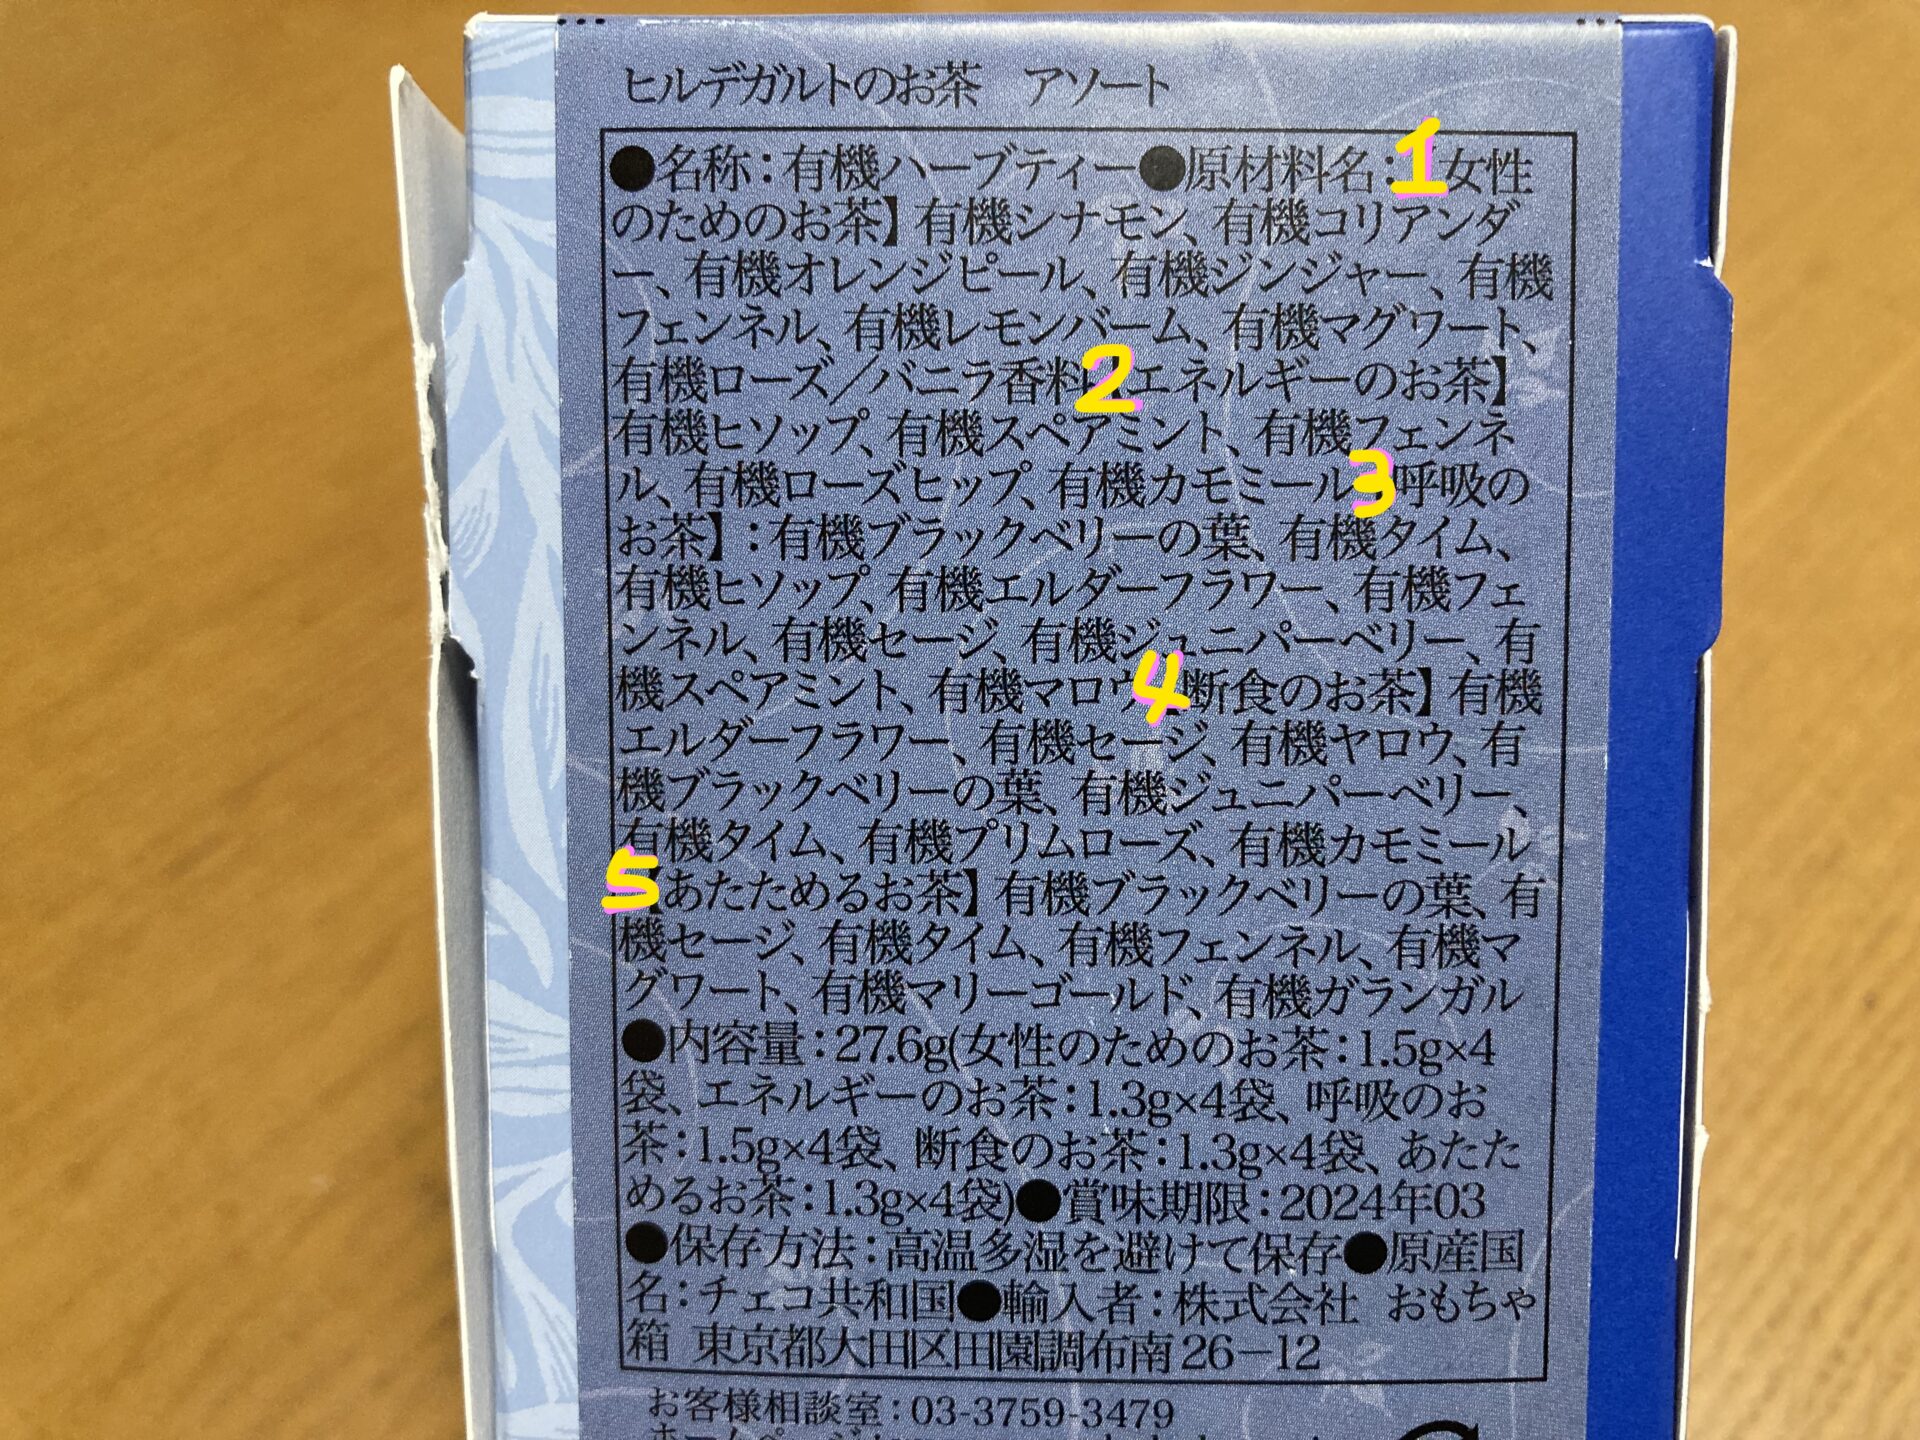 ヒルデガルトのお茶　アソート
●名称：有機ハーブティー●原材料名：1女性
のためのお茶】有機シナモン、有機コリアンダ
ー、有機オレンジピール、有機ジンジャー、有機
フェンネル、有機レモンバーム、有機マグワート、
有機ローズ／バニラ香料2【エネルギーのお茶】
有機ヒソップ、有機スペアミント、有機フェンネ
ル、有機ローズヒップ、有機カモミール3呼吸の
お茶】：有機ブラックベリーの葉、有機タイム、
有機ヒソップ、有機エルダーフラワー、有機フェ
ンネル、有機セージ、有機ジュニパーベリー、有
機スペアミント、有機マロウ4【断食のお茶】有機
エルダーフラワー、有機セージ、有機ヤロウ、有
機ブラックベリーの葉、有機ジュニパーベリー、
有機タイム、有機プリムローズ、有機カモミール
5【あたためるお茶】有機ブラックベリーの葉、有
機セージ、有機タイム、有機フェンネル、有機マ
グワート、有機マリーゴールド、有機ガランガル
●内容量：27.6g(女性のためのお茶：1.5g×4
袋、エネルギーのお茶：1.3g×4袋、呼吸のお
茶：1.5g×4袋、断食のお茶：1.3g×4袋、あたた
めるお茶：1.3g×4袋)●賞味期限：2024年03
●保存方法：高温多湿を避けて保存●原産国
名：チェコ共和国●輸入者：株式会社 おもちゃ
箱 東京都大田区田園調布南26－12
お客様相談室：03-3759-3479